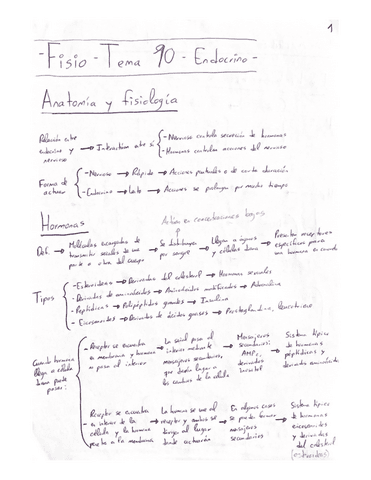 1
- Fisio - Tema 90 - Endocrino -
Anatomía y fisiología
Relación entre endocrino y nervioso → Interaction entre sí
- Nervioso controla secreción de hormonas
- Hormonas controlan acciones del nervioso
Forma de actuar
- Nervioso → Rápido → Acciones puntuales o de corta duración
- Endocrino → Lento → Acciones se prolongan por mucho tiempo
Hormonas
Actúan en concentraciones bajas
Def. → Moléculas encargadas de transmitir señales de una parte a otra del cuerpo → Se distribuyen por sangre → Llegan a órganos y células diana → Presentan receptores específicos para una hormona en concreto
Tipos
- Esteroideas → Derivadas del colesterol → Hormonas sexuales
- Derivadas de aminoácidos → Aminoácidos modificados → Adrenalina
- Peptídicas → Polipéptidos grandes → Insulina
- Eicosanoides → Derivados de ácidos grasos → Prostaglandina,
Cuando hormona llega a célula diana puede pasar:
- Receptor se encuentra en membrana y hormona no pasa al interior → La señal pasa al interior mediante mensajeros secundarios, que darán lugar a los cambios de la célula → Mensajeros secundarios: AMPc, derivados inositol → Sistema típico de hormonas peptídicas y derivadas aminoácidos
- Receptor se encuentra en interior de la célula y la hormona la membrana → La hormona se une al receptor y ambos se dirigen al lugar donde actuarán → En algunos casos se puede formar mensajeros secundarios → Sistema típico de hormonas eicosanoides y derivadas del colesterol (esteroideas)